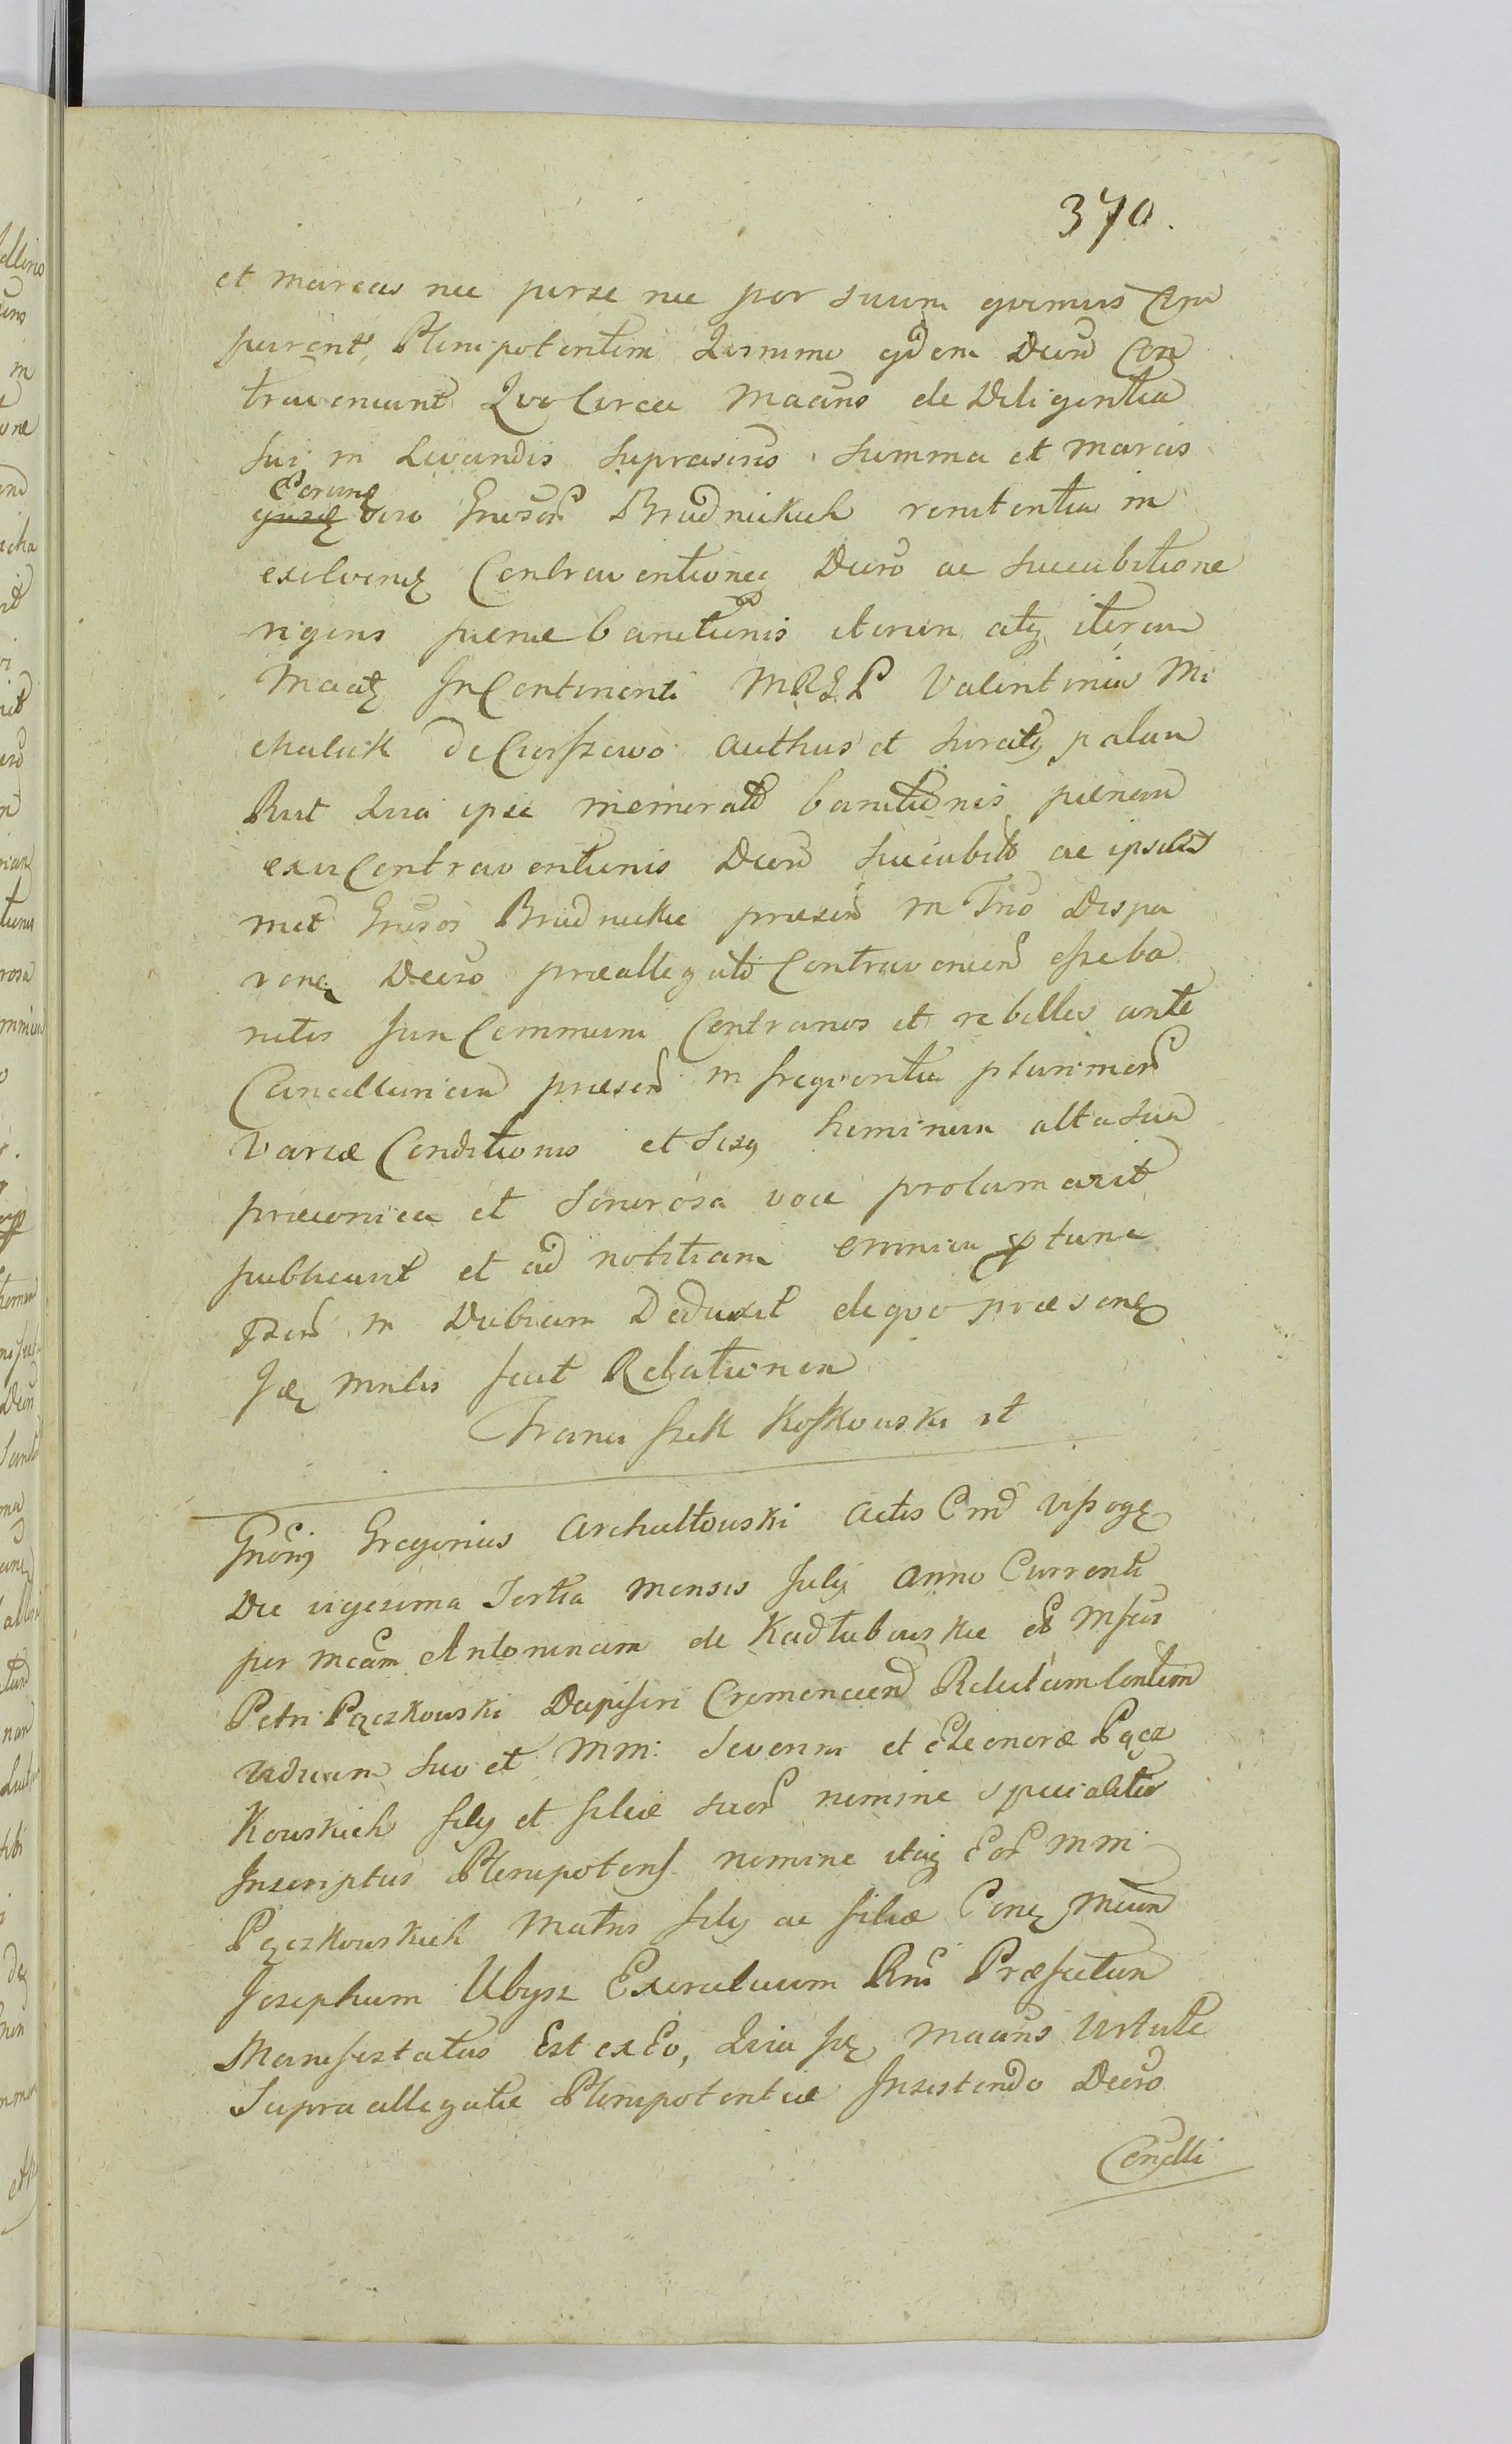 370.
et marcas nec per se nec per suum quemvis Com
parent Plenipotentem Quin imo eidem Decro Con
traveniunt Quo Circa Maanns de Diligentia
sui in Levandis suprascriis summa et marcis
Eorundq vero Grosor Brudnickich renitentia in
exolvend Contraventioneq Decro ac succubitione
rigens pænæ banitionis iterum atq iterum
Maatq In Continenti MRJP Valentinum Mi
chalick de Ciosszewo authus et Juratq palam
Rnt Quia ipse memorato banitionis pænam
ex vi Contraventionis Decro succubito ac ipsos
met Grosos Brudnickie præsen in Trio Dispa
renq Decro præallegato Contravenien esse ba
nitos Juri Communi Contrarios et rebelles ante
Cancellariam præsen in frequentia plurimor
variæ Conditionis et Sexq hominum alta sua
præconica et Sonorosa voce proclamavit
publicavit et ad notitiam omnium ptunc
pzen in Dubium Deduxit de quo præsenq
Jdq Mnlis fecit Relationem
Franciszek Koskowski it
Gnosq Gregorius Archultowski Actis Cmd Vissogq
Die vigesima Tertia mensis July anno Currenti
per Mcam Antoninam de Kadłubowskie ol Mfici
Petri Pączkowski Dapiferi Cremenecen Relictam Contem
viduam suo et MM: Severini et Eleonoræ Pącz
Kowskich fily et filiæ suor nomine specialiter
Inscriptus Plenipotens nomine itaq Eor MM:
Pączkowskich Matris fily ac filiæ Conq Mcum
Josephum Ubysz Exercituum Rni Præfectum
Manifestatus Est ex Eo, Quia Jdq Maanns Virtute
Supra allegatæ Plenipotentiæ Insistendo Decro
Condli